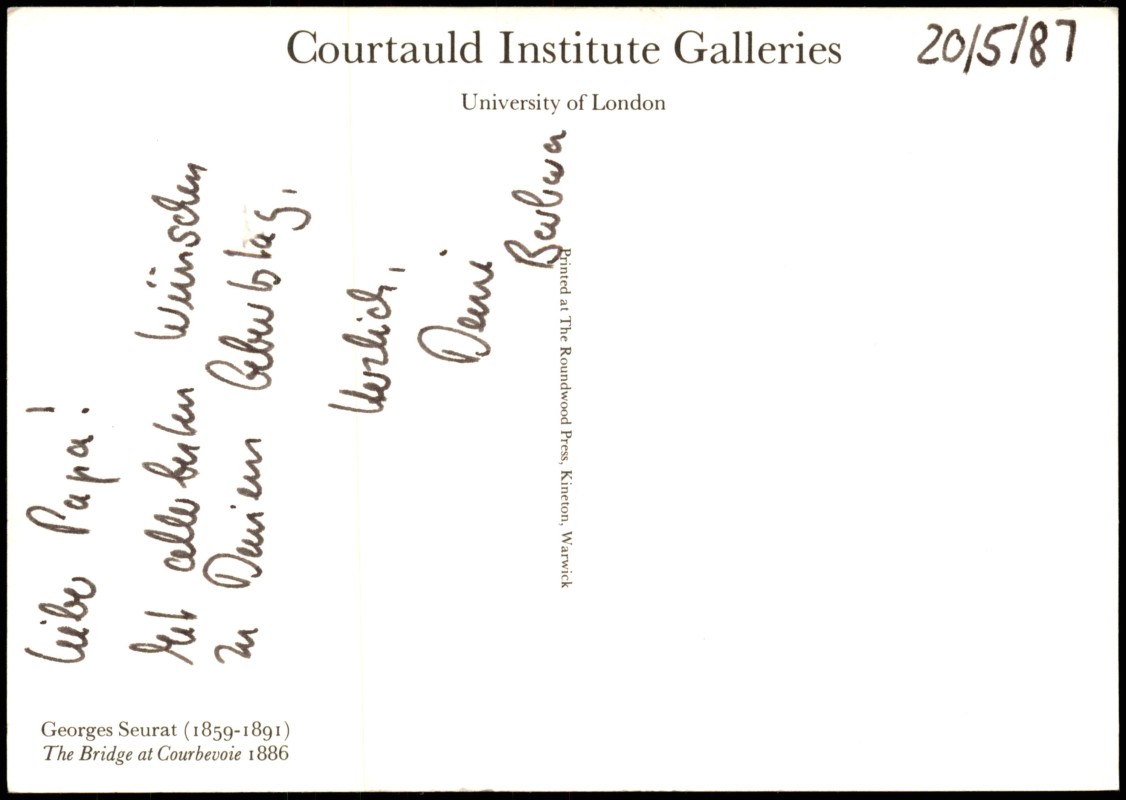 Courtauld Institute Galleries
University of London
20/5/87
Lieber Papa!
Mit allerbesten Wünschen
zu Deinem Geburtstag,
Herzlich,
Deine
Barbara
Printed at The Roundwood Press, Kineton, Warwick
Georges Seurat (1859-1891)
The Bridge at Courbevoie 1886